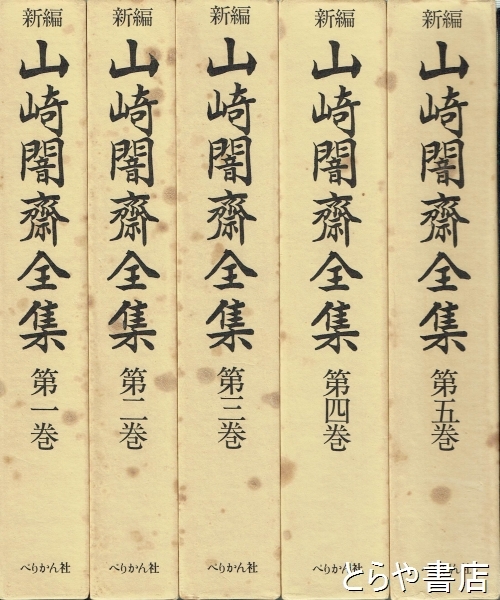 新編
山崎闇齋全集
第一巻
ぺりかん社
新編
山崎闇齋全集
第二巻
ぺりかん社
新編
山崎闇齋全集
第三巻
ぺりかん社
新編
山崎闇齋全集
第四巻
ぺりかん社
新編
山崎闇齋全集
第五巻
ぺりかん社
とらや書店